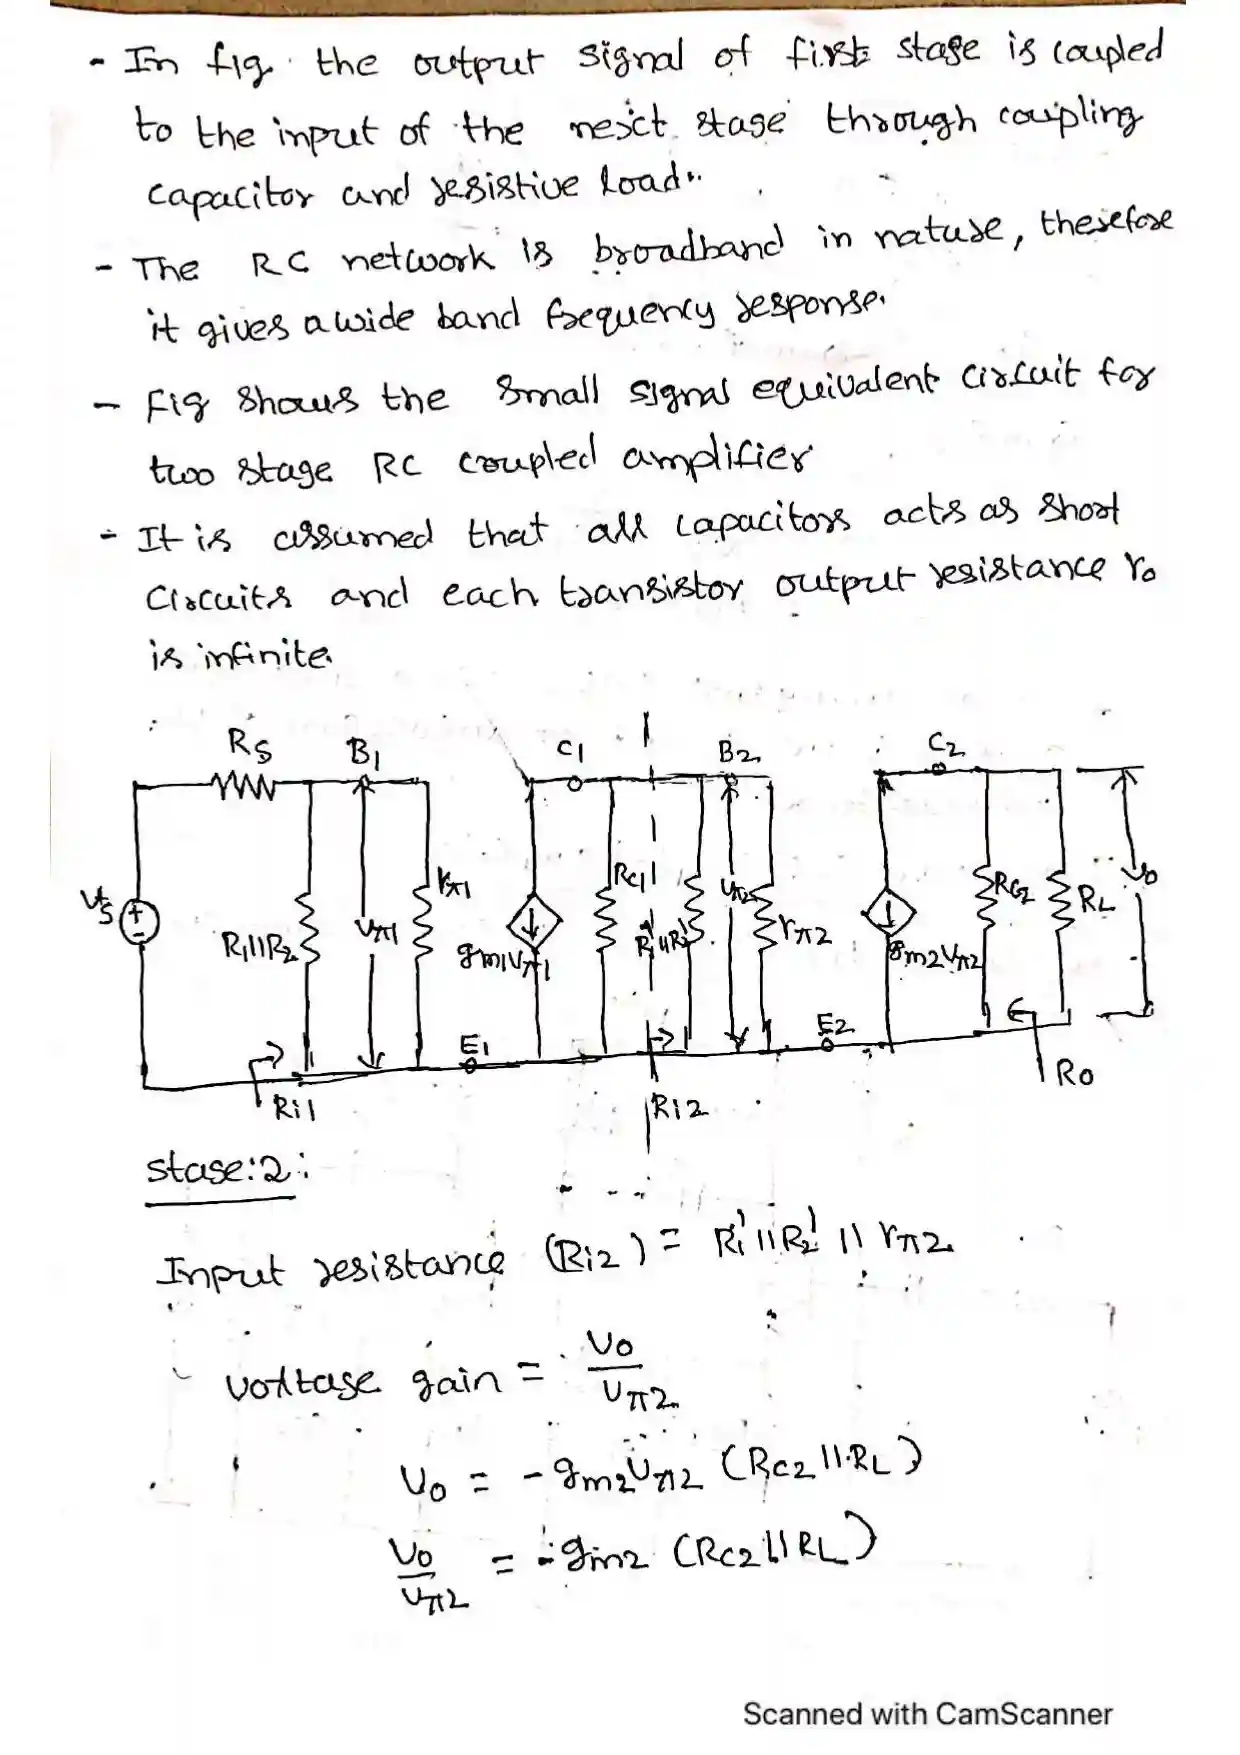 - In fig. the output signal of first stage is coupled
to the input of the next stage through coupling
capacitor and resistive load.
- The RC network is broadband in nature, therefore
it gives a wide band frequency response.
- Fig shows the small signal equivalent circuit for
two stage RC coupled amplifier
- It is assumed that all capacitors acts as short
circuits and each transistor output resistance ro
is infinite.
RS B1 C1 B2 C2
VS R1||R2 Vπ1 rπ1 gm1Vπ1 RC1 R1'||R2' Vπ2 rπ2 gm2Vπ2 RC2 RL Vo
E1 E2
Ri1 Ri2 Ro
stage:2:
Input resistance (Ri2) = R1'||R2' || rπ2
voltage gain = Vo/Vπ2
Vo = -gm2Vπ2 (RC2||RL)
Vo/Vπ2 = -gm2 (RC2||RL)
Scanned with CamScanner